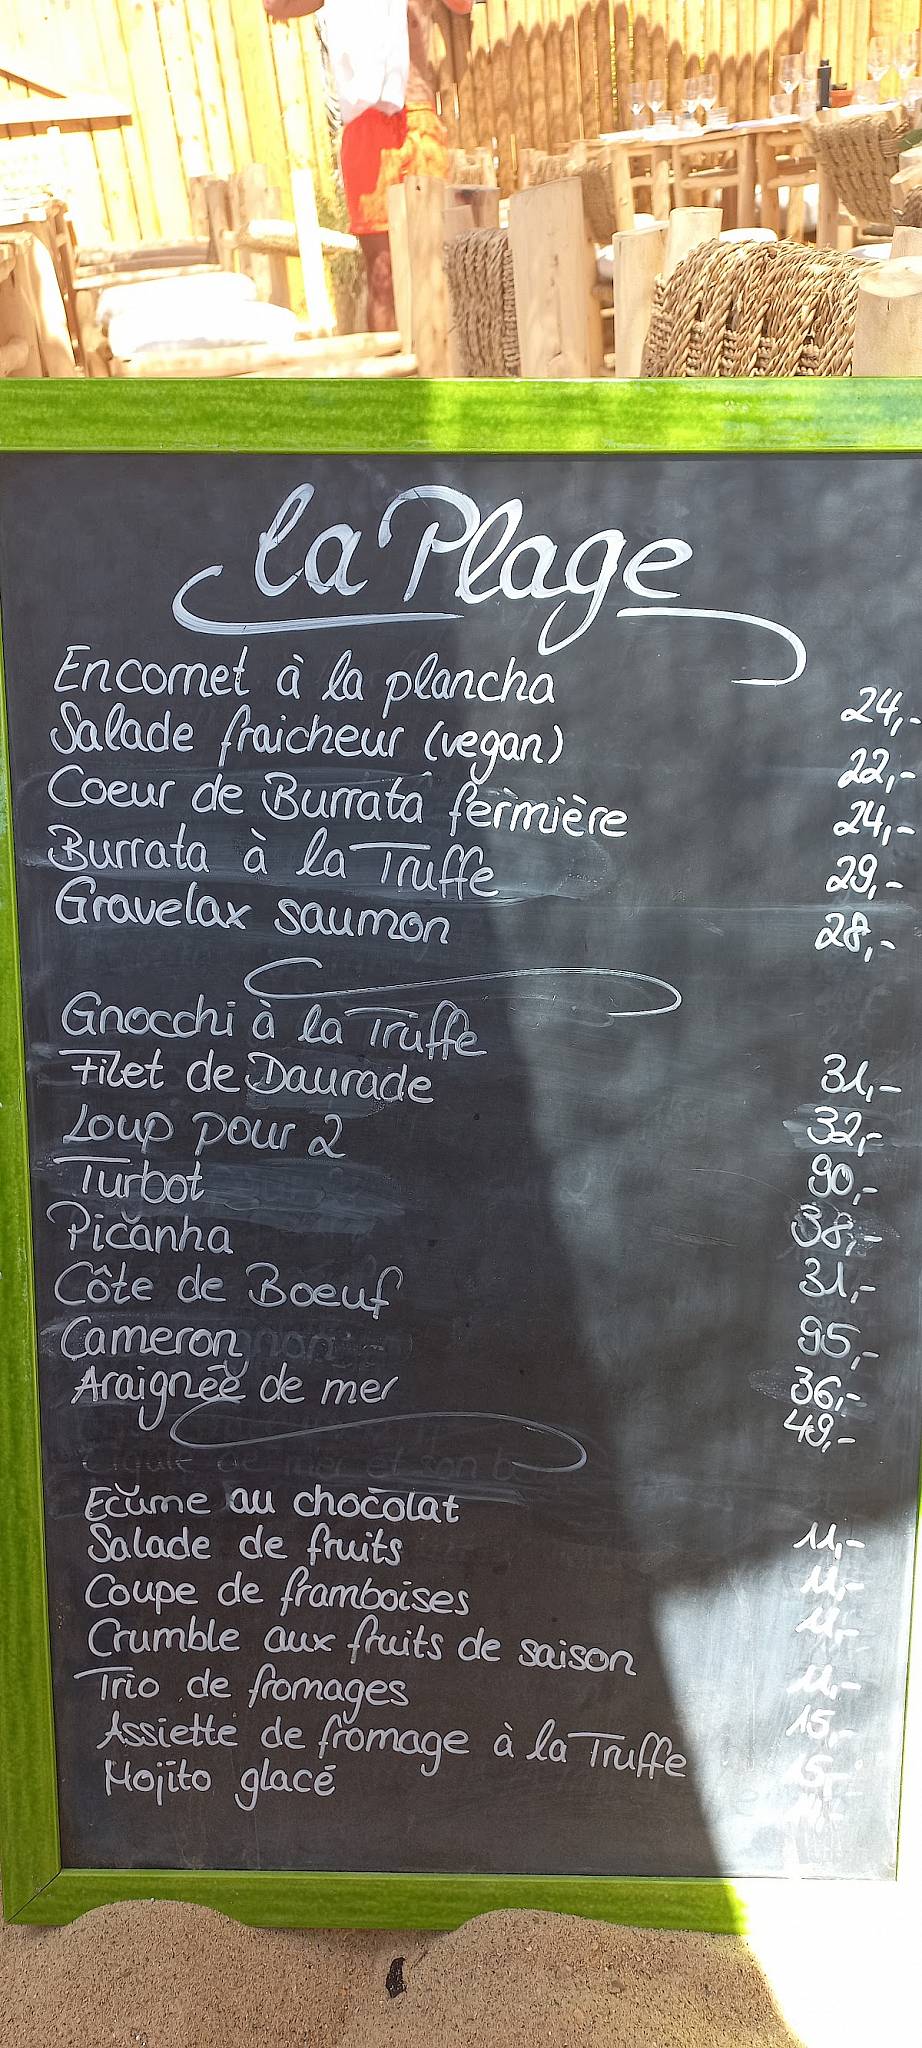 la Plage
Encornet à la plancha 24,-
Salade fraicheur (vegan) 22,-
Coeur de Burrata fermière 24,-
Burrata à la Truffe 29,-
Gravelax saumon 28,-
Gnocchi à la Truffe 31,-
Filet de Daurade 32,-
Loup pour 2 90,-
Turbot 38,-
Picanha 31,-
Côte de Boeuf 95,-
Cameron 36,-
Araignée de mer 49,-
Ecume au chocolat 11,-
Salade de fruits 11,-
Coupe de framboises 11,-
Crumble aux fruits de saison 11,-
Trio de fromages 15,-
Assiette de fromage à la Truffe 15,-
Mojito glacé